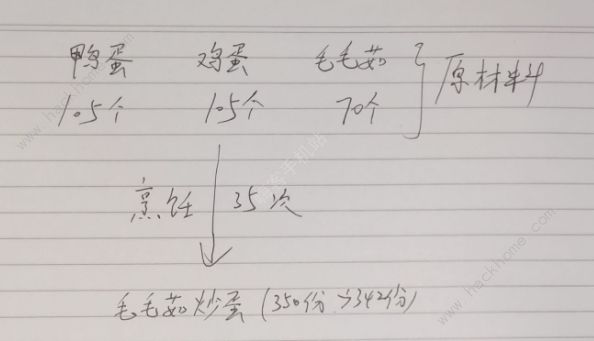 鸭蛋 鸡蛋 毛毛菇 原材料
105个 105个 70个
烹饪 35次
毛毛菇炒蛋(350份>342份)
www.hackhome.com
www.hackhome.com